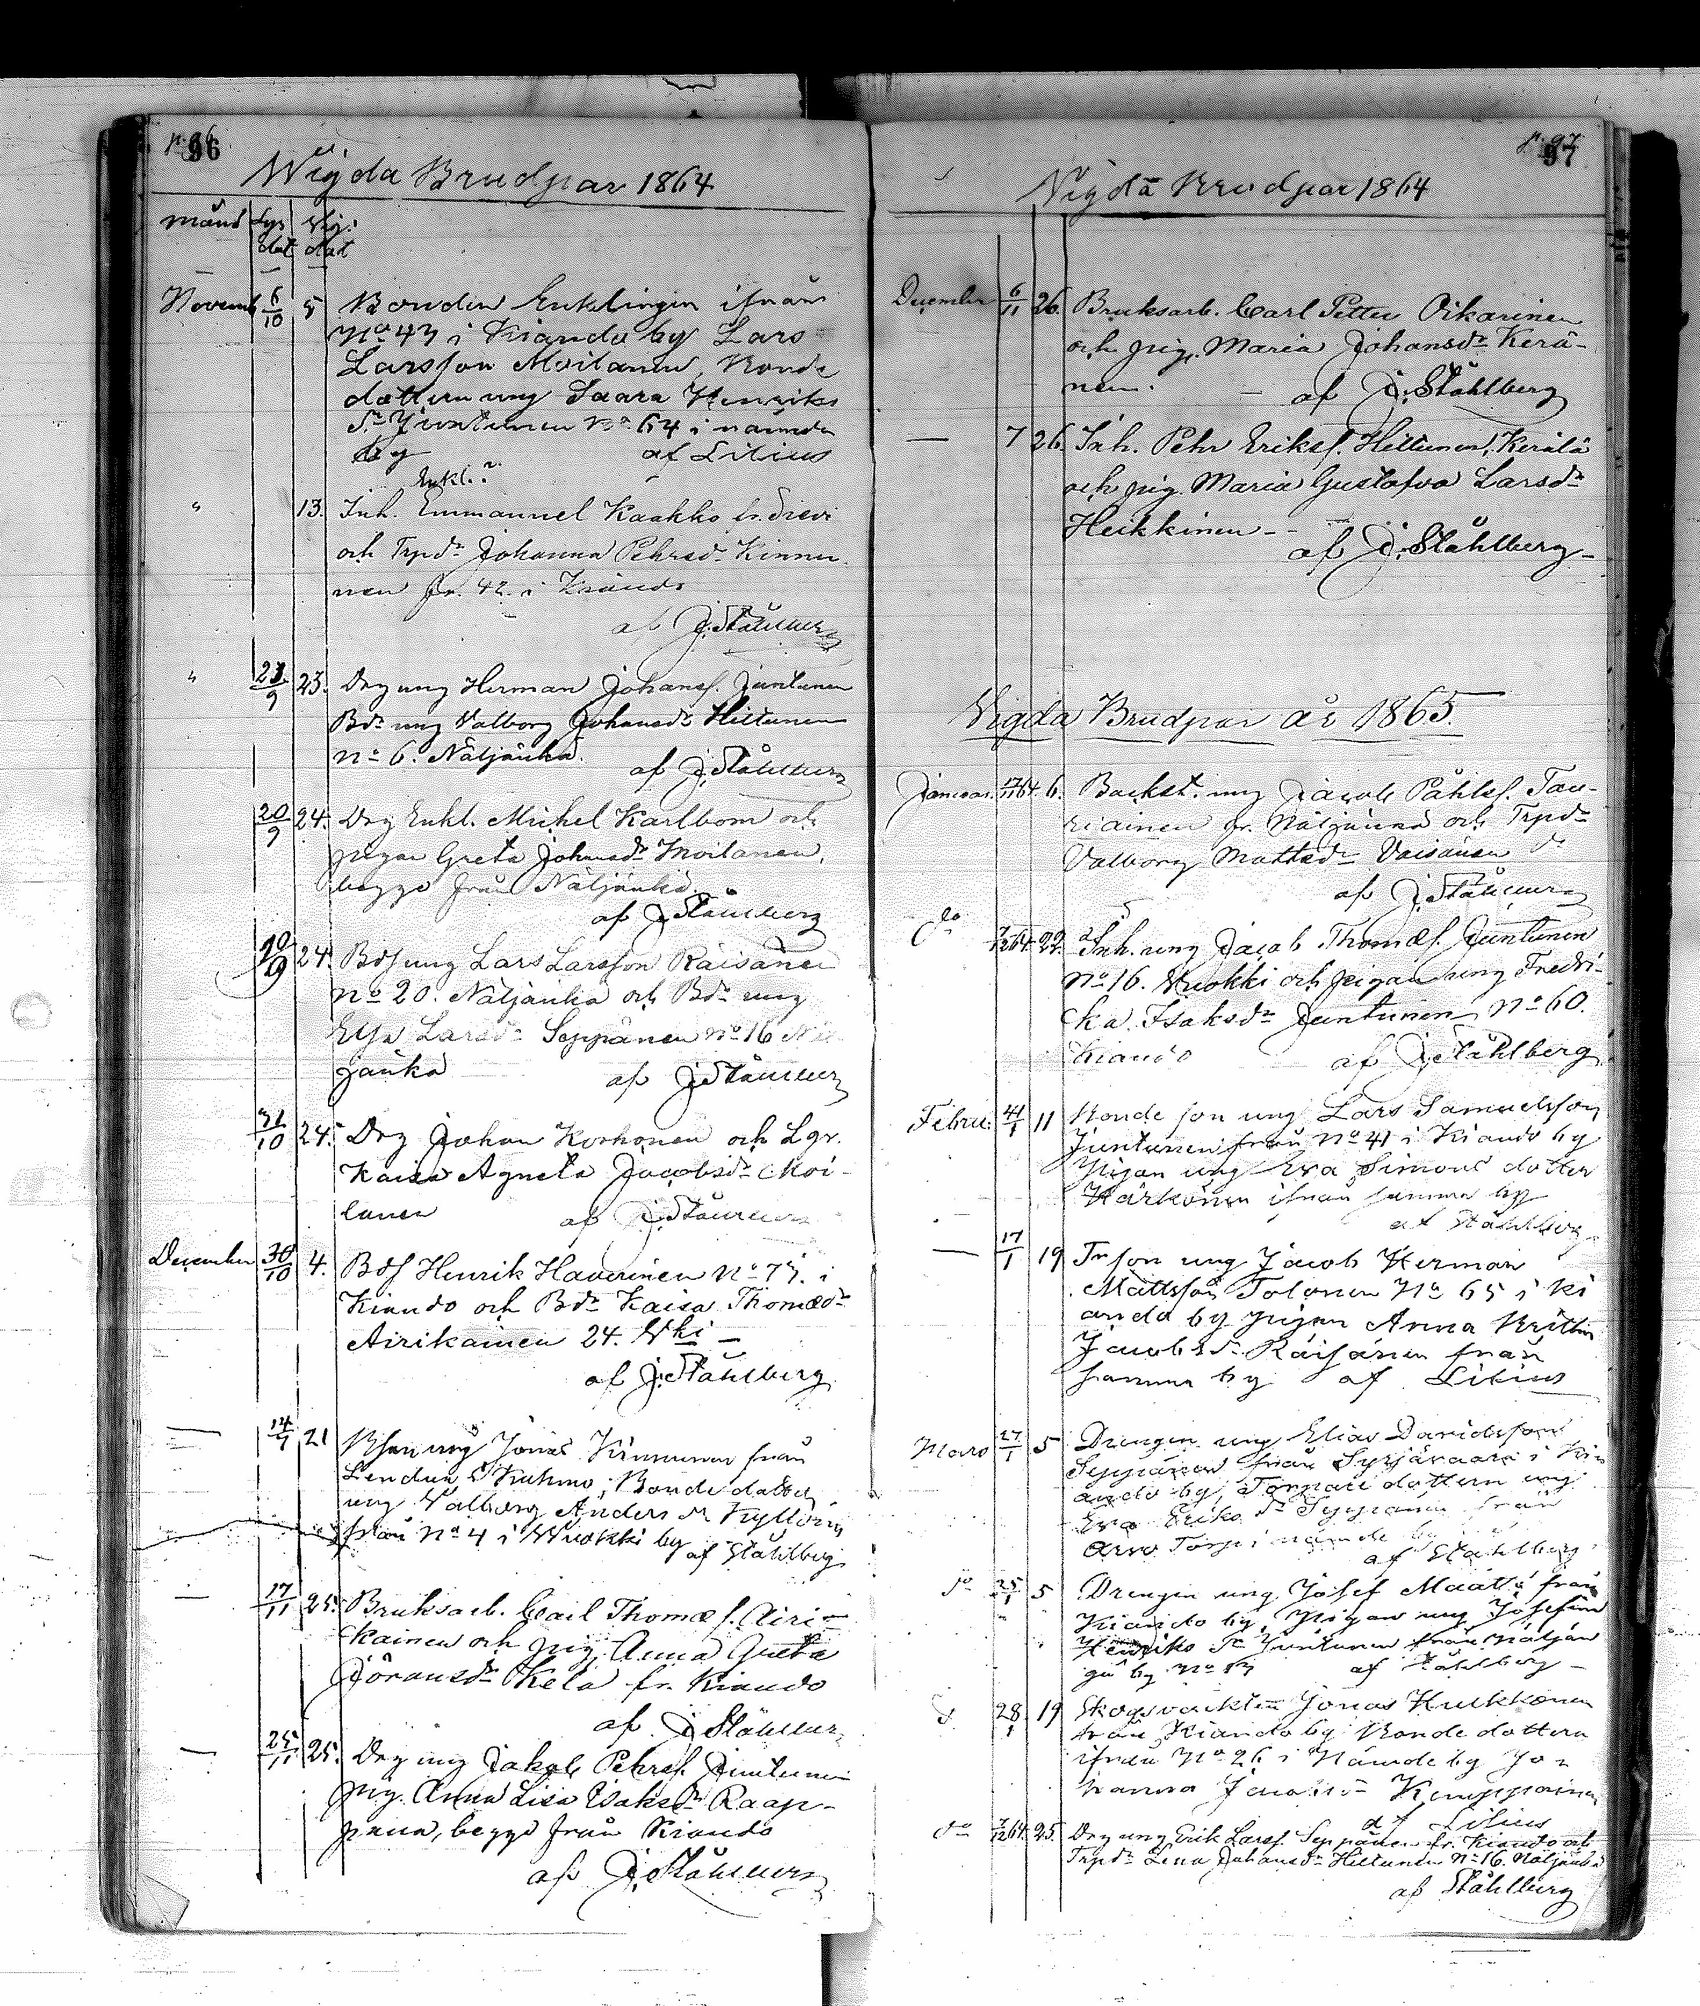 p. 96
96
Wigda Brudpar 1864
månd Lys Vig:
dat dat
Novemb 6/10 5 Bonden Enklingen ifrån
No 43 i Kiando by Lars
Larsson Moilanen, Bonde
dottern ung Saara Henriks
dr Juntunen No 64 i nämnde
by af Lilius
Enkl.?
" 13. Inh. Emmanuel Kaakko fr. Sievi
och Trpdr Johanna Pehrsdr Kinnu
nen fr. 42. i Kiando
af J. Ståhlberg
" 23/9 23. Drg ung Herman Johanss. Juntunen
Bdr ung Valborg Johansdr Hiltunen
No 6. Näljänkä.
af J. Ståhlberg
20/9 24. Drg Enkl. Michel Karlbom och
pigan Greta Johansdr Moilanen,
begge från Näljänkä.
af J. Ståhlberg
24. Bds ung Lars Larsson Räisänen
No 20. Näljänkä och Bdr ung
Elsa Larsdr Seppänen No 16 Näl
jänkä af J. Ståhlberg
31/10 24. Drg Johan Korhonen och Lgr.
Kaisa Agneta Jacobsdr Moi-
lanen af J. Ståhlberg
December 30/10 4. Bds Henrik Haverinen No 73. i
Kiando och Bdr Kaisa Thomædr
Airikainen 24. Wki –
af J. Ståhlberg
— 14/ 21 ung Jonas Kinnunen från
i Kuhmo, Bonde dotter
ung Valborg Anders dr Kyllönen
från No 4 i Wuokki by
af Ståhlberg
— 17/11 25. Bruksarb. Carl Thomæs. Airi-
kainen och pig. Anna Greta
Göransdr Kela fr. Kiando
af J. Ståhlberg
— 25/11 25. Drg ung Jakob Pehrss. Juntunen
pig. Anna Lisa Isaksdr Raap-
pana, begge från Kiando
af J. Ståhlberg
p. 97
97
Vigda Brudpar 1864
December 6/11 26. Bruksarb. Carl Petter Oikarinen
och pig. Maria Johansdr Kerä-
nen. — af J. Ståhlberg
— 7 26. Inh. Pehr Erikss. Hiltunen, Kerälä
och pig. Maria Gustafva Larsdr
Heikkinen –
af J. Ståhlberg –
Vigda Brudpar år 1865.
Januar. 64. 6. Backst. ung Jacob Påhlss. Tau-
riainen fr. Näljänkä och Trpdr
Valborg Mattsdr Väisänen do
af J. Ståhlberg
do 64. 22. Inh. ung Jacob Thomæs. Juntunen
No 16. Wuokki och pigan ung Fredri-
ka Isaksdr Juntunen No 60.
Kiando af J. Ståhlberg
Febru. 11 Bonde son ung Lars Samuelsson
Juntunen från No 41 i Kiando by
Pigan ung Eva Simons dotter
Härkönen ifrån samma by
af Ståhlberg
— 17/1 19 Tr son ung Jacob Herman
Mattsson Tolonen No 65 i Ki
ando by pigan Anna Kristin
Jacobsdr Räisänen från
samma by af Lilius
Mars 27/1 5 Drengen ung Elias Davidsson
Seppänen från Syrjävaara i Ki
ando by, Torpare dottern ung
Eva Eriks dr Seppänen från
Torp i nämnde by
af Ståhlberg
do 25/1 5 Drengen ung Josef Määttä från
Kiando by, Pigan ung Josefina
Henriks dr Juntunen från Näljän
gä by No 13 af Ståhlberg –
d. 28/1 19 Skogsvacktar Jonas Hukkonen
från Kiando by Bonde dottern
ifrån No 26 i Nämde by Jo
hanna Jacobsdr Kemppainen
af Lilius
do 7/12 64. 25. Drg ung Erik Larss. Seppänen fr. Kiando och
Trpdr Lena Johansdr Hiltunen No 16. Näljänkä
af Ståhlberg